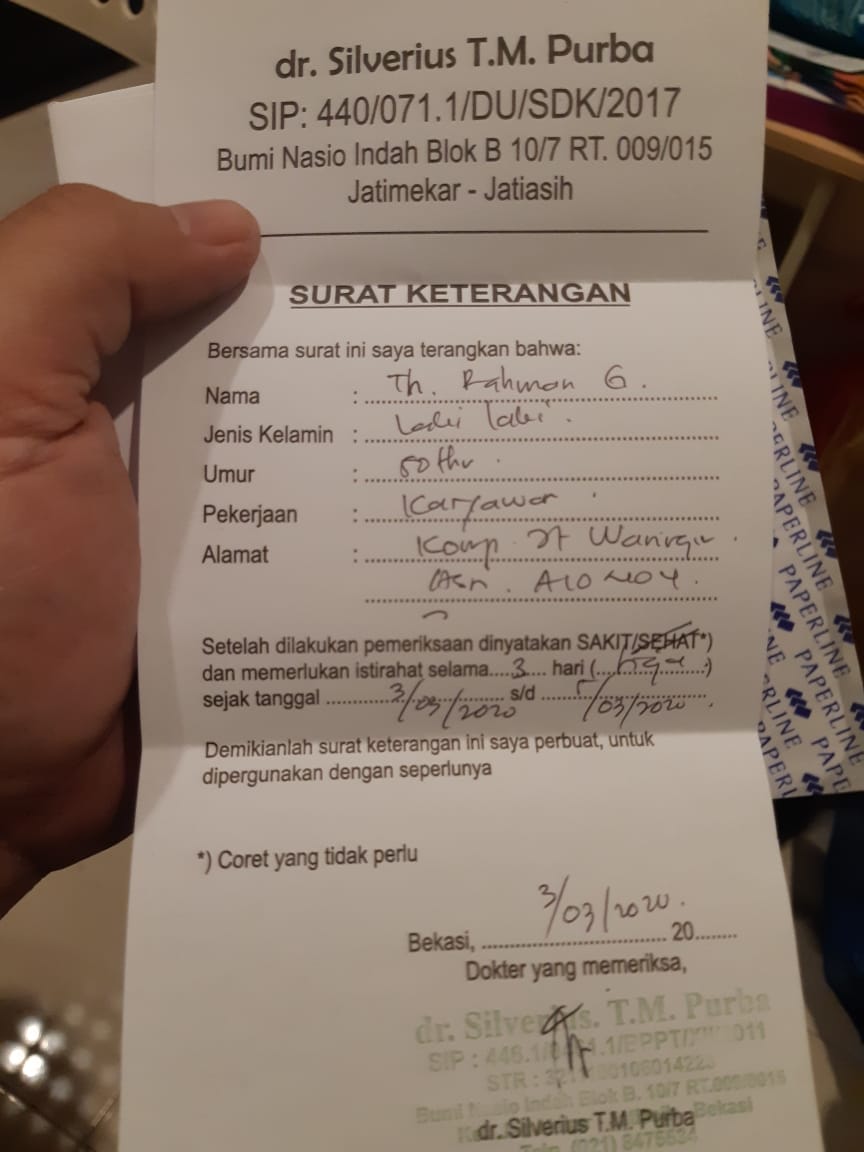 dr. Silverius T.M. Purba
SIP: 440/071.1/DU/SDK/2017
Bumi Nasio Indah Blok B 10/7 RT. 009/015
Jatimekar - Jatiasih
SURAT KETERANGAN
Bersama surat ini saya terangkan bahwa:
Nama : Th. Rahman G.
Jenis Kelamin : Laki laki.
Umur : 50 thn.
Pekerjaan : Karyawan
Alamat : Komp
A10 No 4.
Setelah dilakukan pemeriksaan dinyatakan SAKIT/SEHAT*)
dan memerlukan istirahat selama....3.... hari (...tiga...)
sejak tanggal 3/03/2020 s/d 5/03/2020.
Demikianlah surat keterangan ini saya perbuat, untuk
dipergunakan dengan seperlunya
*) Coret yang tidak perlu
3/03/2020.
Bekasi, 20........
Dokter yang memeriksa,
dr. Silverius. T.M. Purba
SIP :
STR :
Bumi Nasio Indah Blok B. 10/7 RT.009/0015
Bekasi
dr. Silverius T.M. Purba
Telp. (021)
PAPERLINE
PAPERLINE
PAPERLINE
PAPERLINE